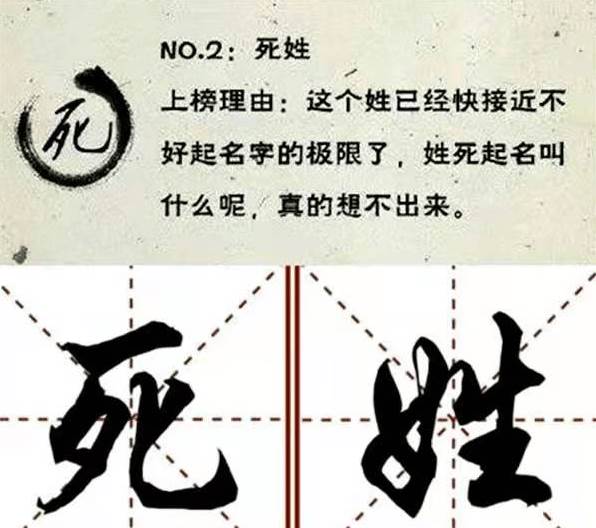 死
NO.2：死姓
上榜理由：这个姓已经快接近不
好起名字的极限了，姓死起名叫
什么呢，真的想不出来。
死 姓